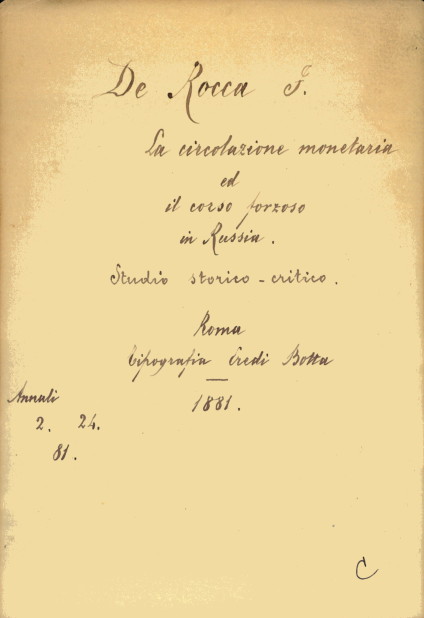 De Rocca F.
La circolazione monetaria
ed
il corso forzoso
in Russia.
Studio storico-critico.
Roma
Tipografia Eredi Botta
1881.
Annali
2. 24.
81.
C